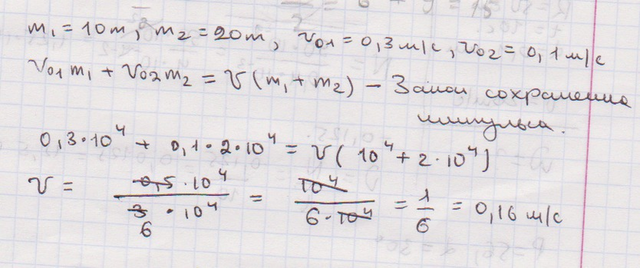 m₁ = 10т, m₂ = 20т, v₀₁ = 0,3 м/с, v₀₂ = 0,1 м/с
v₀₁ m₁ + v₀₂ m₂ = v (m₁ + m₂) – Закон сохранения
импульса.
0,3·10⁴ + 0,1·2·10⁴ = v( 10⁴ + 2·10⁴)
v = 0,5·10⁴ / 3 6 ·10⁴ = 10⁴ / 6·10⁴ = 1/6 = 0,16 м/с